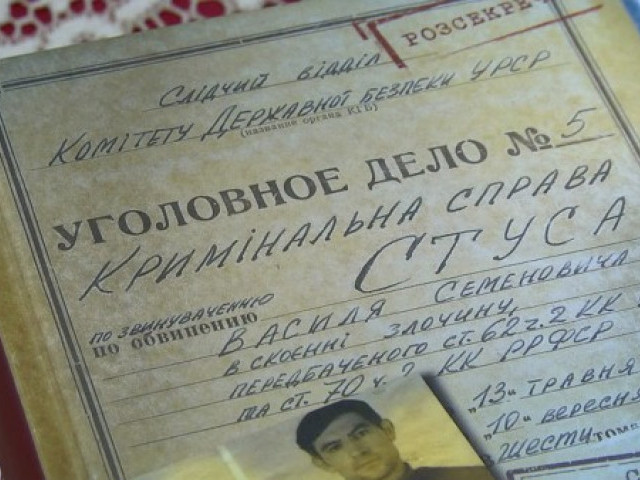 РОЗСЕКРЕ
Слідчий відділ
Комітету Державної безпеки УРСР
(название органа КГБ)
УГОЛОВНОЕ ДЕЛО № 5
Кримінальна справа
по звинуваченню СТУСА
по обвинению Василя Семеновича
в скоєнні злочину,
передбаченого ст. 62 ч. 2 КК
та ст. 70 ч. 2 КК РРФСР
„13“ травня
„10“ вересня
в шести томах